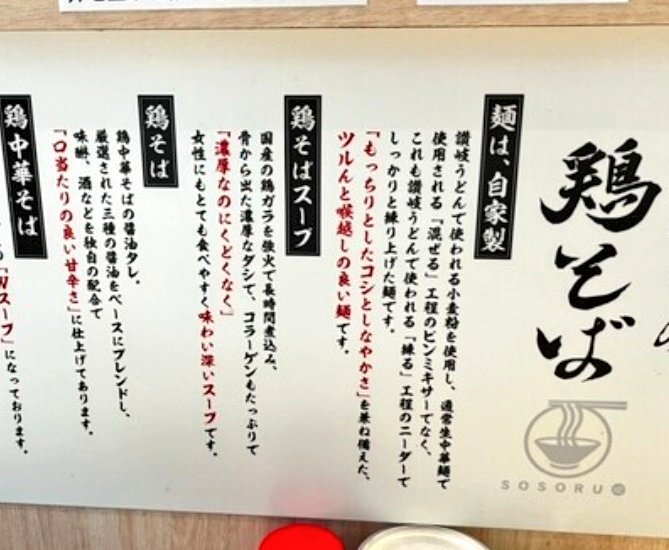 鶏そば
SOSORU
麺は、自家製
讃岐うどんで使われる小麦粉を使用し、通常生中華麺で
使用される「混ぜる」工程のピンミキサーでなく、
これも讃岐うどんで使われる「練る」工程のニーダーで
しっかりと練り上げた麺です。
「もっちりとしたコシとしなやかさ」を兼ね備えた、
ツルんと喉越しの良い麺です。
鶏そばスープ
国産の鶏ガラを強火で長時間煮込み、
骨から出た濃厚なダシで、コラーゲンもたっぷりで
「濃厚なのにくどくなく」
女性にもとても食べやすく味わい深いスープです。
鶏そば
鶏中華そばの醤油タレ。
厳選された三種の醤油をベースにブレンドし、
味醂、酒などを独自の配合で
「口当たりの良い甘辛さ」に仕上げてあります。
鶏中華そば
「Wスープ」になっております。